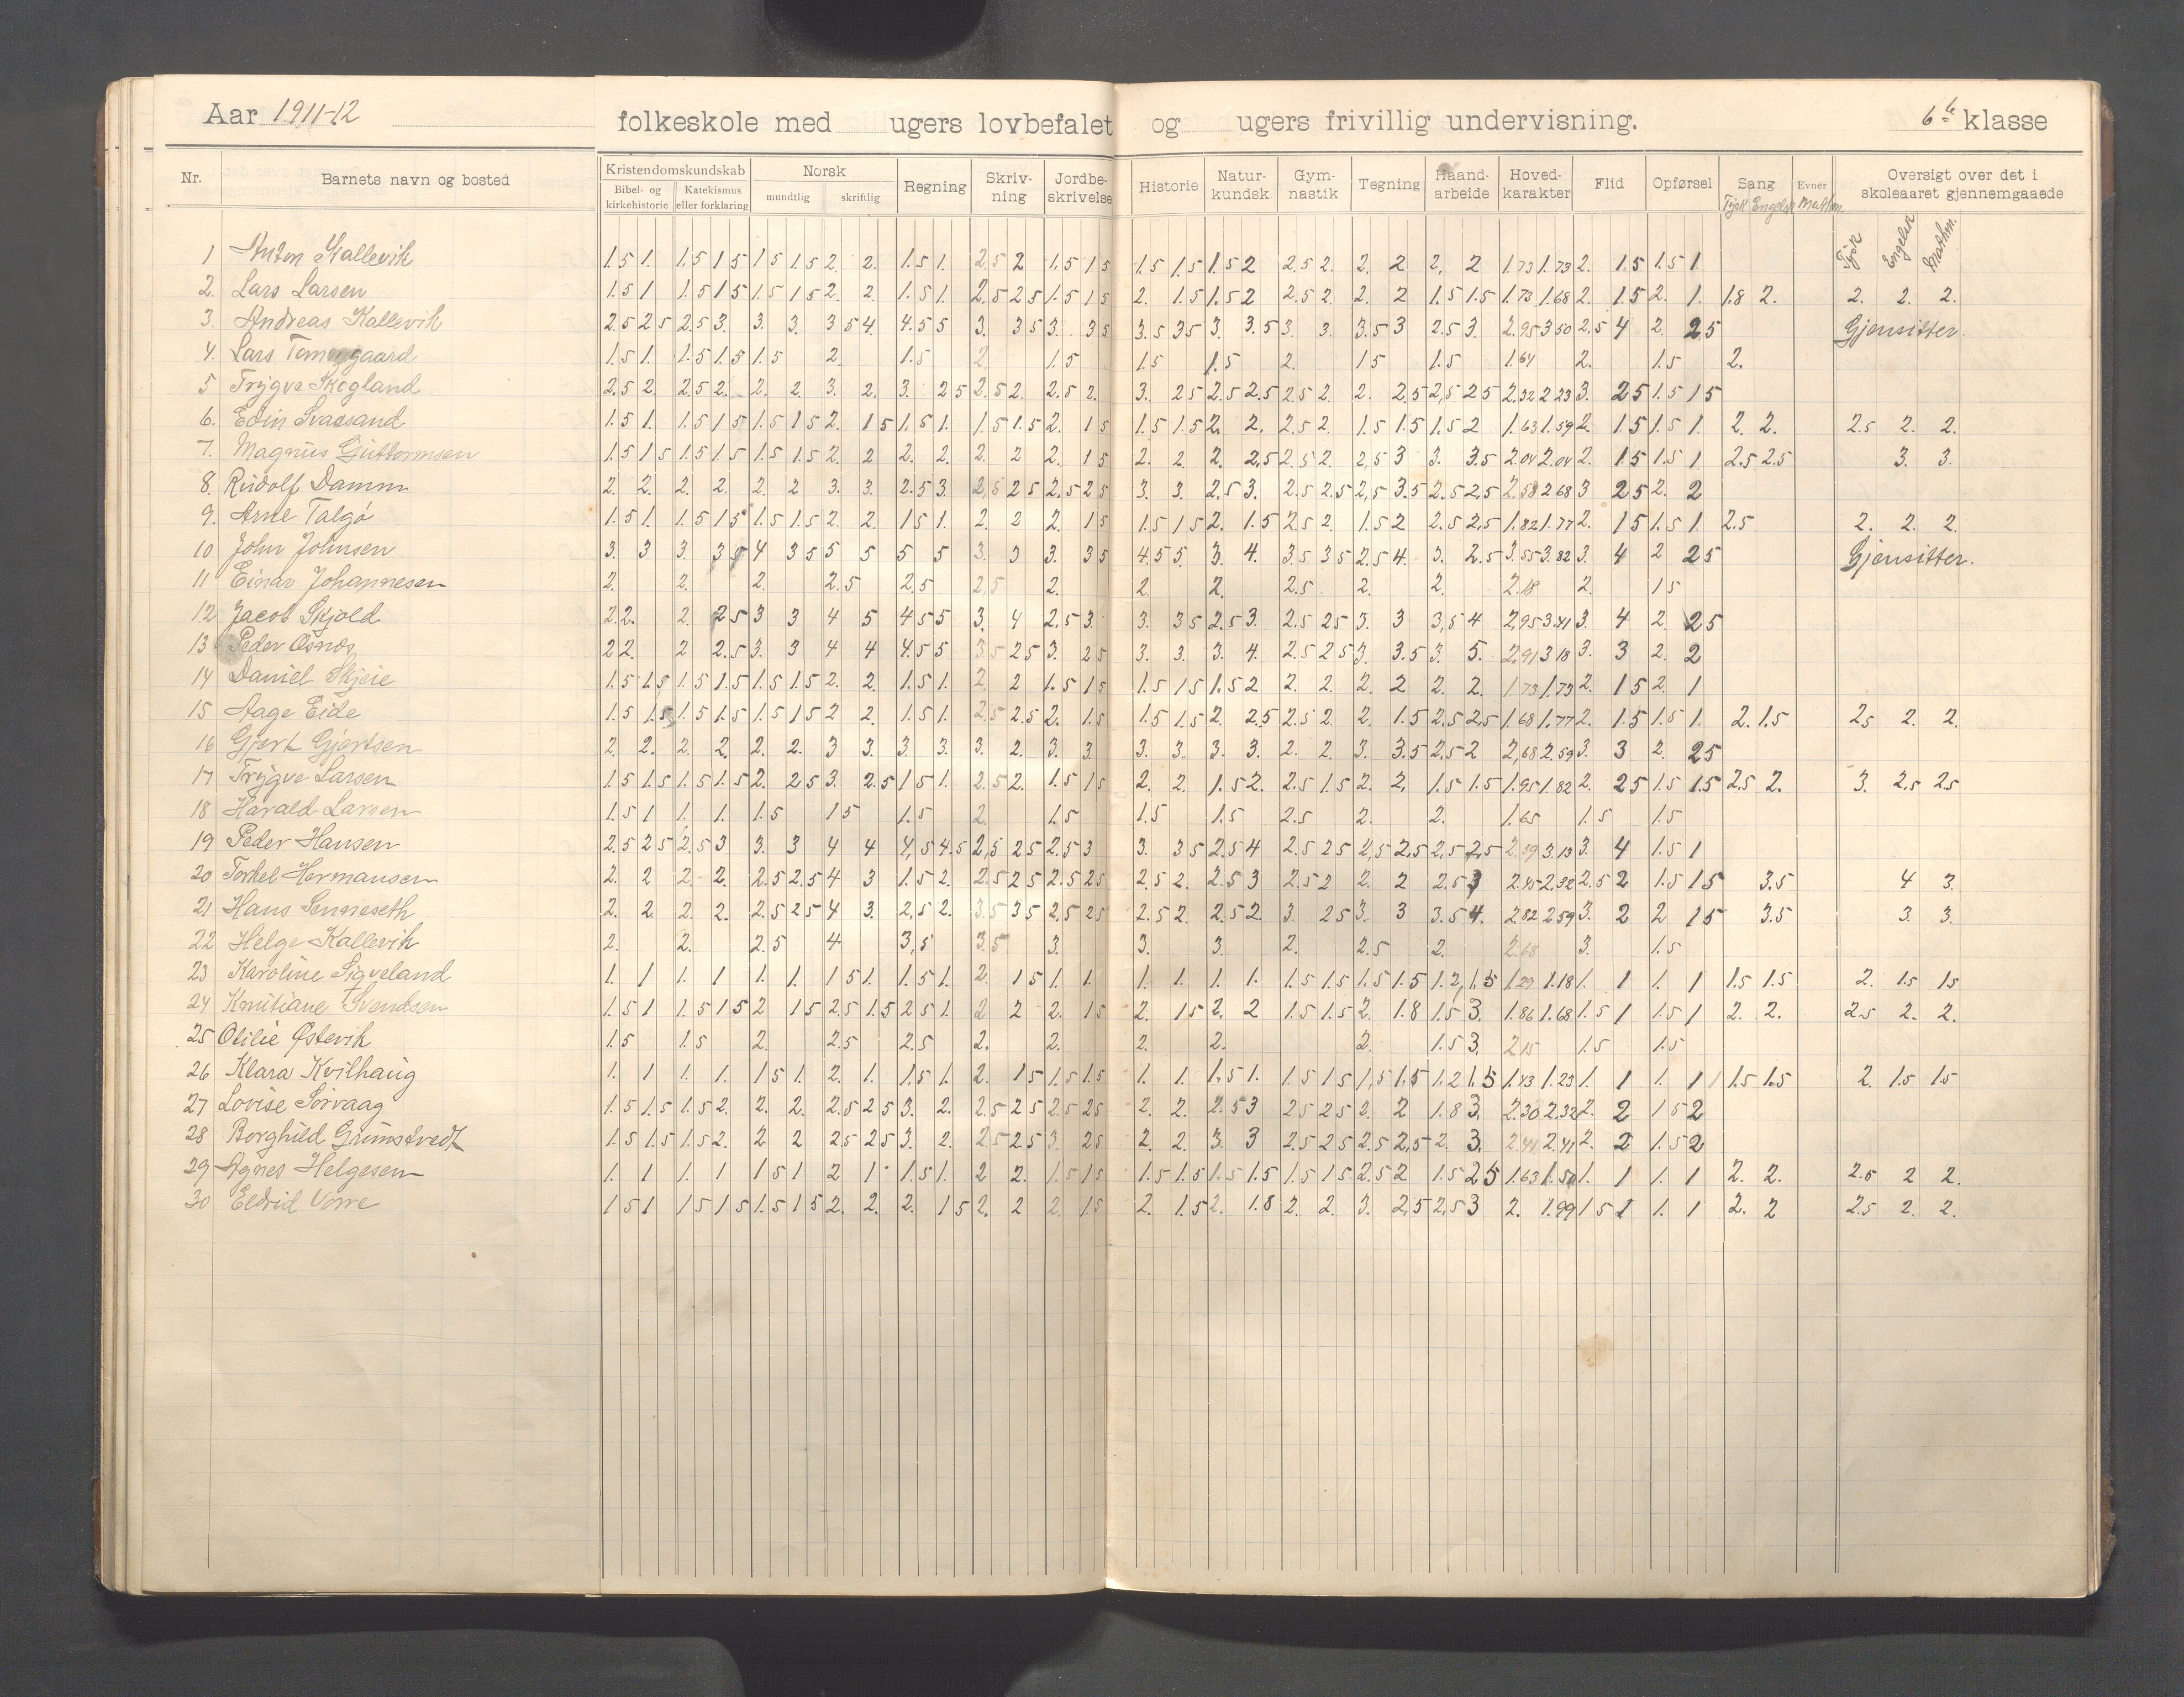 Aar 1911-12 folkeskole med ugers lovbefalet og ugers frivillig undervisning. 6te klasse
Nr. Barnets navn og bosted Kristendomskundskab Norsk Regning Skriv-ning Jordbe-skrivelse Historie Natur-kundsk. Gym-nastik Tegning Haand-arbeide Hoved-karakter Flid Opførsel Sang Evner Oversigt over det i skoleaaret gjennemgaaede
Bibel- og kirkehistorie Katekismus eller forklaring mundtlig skriftlig Tysk Engelsk Mathm. Tysk Engelsk Mathm.
1 Anton Kallevik 1.5 1. 1.5 1.5 1.5 1.5 2. 2. 1.5 1. 2.5 2 1.5 1.5 1.5 1.5 1.5 2 2.5 2. 2. 2 2. 2 1.73 1.73 2. 1.5 1.5 1
2. Lars Larsen 1.5 1 1.5 1.5 1.5 1.5 2. 2. 1.5 1. 2.5 2.5 1.5 1.5 2. 1.5 1.5 2 2.5 2. 2. 2 1.5 1.5 1.73 1.68 2. 1.5 2. 1. 1.8 2. 2. 2. 2.
3. Andreas Kallevik 2.5 2.5 2.5 3. 3. 3. 3.5 4. 4.5 5 3. 3.5 3. 3.5 3.5 3.5 3. 3.5 3. 3. 3.5 3 2.5 3. 2.95 3.50 2.5 4 2. 2.5 Gjensitter.
4. Lars 1.5 1. 1.5 1.5 1.5 2. 1.5 2. 1.5 1.5 1.5 2. 1.5 1.5 1.64 2. 1.5 2.
5 Trygve Skogland 2.5 2. 2.5 2. 2. 2. 3. 2. 3. 2.5 2.5 2. 2.5 2. 3. 2.5 2.5 2.5 2.5 2. 2. 2.5 2.5 2.5 2.32 2.23 3. 2.5 1.5 1.5
6. Edin Svaasand 1.5 1. 1.5 1.5 1.5 1.5 2. 1.5 1.5 1. 1.5 1.5 2. 1.5 1.5 1.5 2. 2. 2.5 2. 1.5 1.5 1.5 2 1.63 1.59 2. 1.5 1.5 1. 2. 2. 2.5 2. 2.
7. Magnus Guttormsen 1.5 1.5 1.5 1.5 1.5 1.5 2. 2 2. 2. 2. 2 2. 1.5 2. 2. 2. 2.5 2.5 2. 2.5 3 3. 3.5 2.04 2.04 2. 1.5 1.5 1 2.5 2.5 3. 3.
8. Rudolf Damm 2. 2. 2. 2. 2. 2 3. 3. 2.5 3. 2.5 2.5 2.5 2.5 3. 3. 2.5 3. 2.5 2.5 2.5 3.5 2.5 2.5 2.58 2.68 3 2.5 2. 2
9. Arne Talgø 1.5 1. 1.5 1.5 1.5 1.5 2. 2. 1.5 1. 2. 2 2. 1.5 1.5 1.5 2. 1.5 2.5 2. 1.5 2 2.5 2.5 1.82 1.77 2. 1.5 1.5 1 2.5 2. 2. 2.
10 John Johnsen 3. 3 3. 4 3.5 5 5 5 5 3. 3 3. 3.5 4.5 5. 3. 4. 3.5 3.5 2.5 4. 3. 2.5 3.55 3.82 3. 4 2 2.5 Gjensitter.
11 Einar Johannesen 2. 2. 2. 2.5 2.5 2.5 2. 2. 2. 2.5 2. 2. 2.18 2. 1.5
12 Jacob Skjold 2 2. 2. 2.5 3 3 4 5 4.5 5 3. 4 2.5 3. 3. 3.5 2.5 3. 2.5 2.5 3. 3 3.5 4 2.95 3.41 3. 4 2. 2.5
13 Peder Øsnes 2 2. 2 2.5 3. 3 4 4 4.5 5 3.5 2.5 3. 2.5 3. 3. 3. 4. 2.5 2.5 3. 3.5 3. 5. 2.91 3.18 3. 3 2. 2
14 Daniel Skjeie 1.5 1.5 1.5 1.5 1.5 1.5 2. 2. 1.5 1. 2. 2 1.5 1.5 1.5 1.5 1.5 2 2. 2. 2. 2 2. 2. 1.73 1.73 2. 1.5 2. 1
15 Aage Eide 1.5 1.5 1.5 1.5 1.5 1.5 2 2. 1.5 1. 2.5 2.5 2. 1.5 1.5 1.5 2. 2.5 2.5 2. 2. 1.5 2.5 2.5 1.68 1.77 2. 1.5 1.5 1. 2. 1.5 2.5 2. 2.
16 Gjert Gjertsen 2. 2. 2. 2 2. 2. 3 3. 3 3. 3. 2. 3. 3 3. 3. 3. 3. 2. 2. 3. 3.5 2.5 2 2.68 2.59 3. 3 2. 2.5
17 Trygve Larsen 1.5 1.5 1.5 1.5 2. 2.5 3. 2.5 1.5 1. 2.5 2. 1.5 1.5 2. 2. 1.5 2. 2.5 1.5 2. 2. 1.5 1.5 1.95 1.82 2. 2.5 1.5 1.5 2.5 2. 3. 2.5 2.5
18 Harald Larsen 1.5 1 1. 1. 1.5 1.5 1.5 2. 1.5 1.5 1.5 2.5 2. 2. 1.65 1.5 1.5
19 Peder Hansen 2.5 2.5 2.5 3 3. 3 4 4 4.5 4.5 2.5 2.5 2.5 3 3. 3.5 2.5 4 2.5 2.5 2.5 2.5 2.5 2.5 3.13 3. 4 1.5 1
20 Torkel Hermansen 2. 2 2. 2. 2.5 2.5 4 3 1.5 2. 2.5 2.5 2.5 2.5 2.5 2. 2.5 3 2.5 2 2. 2 2.5 3 2.32 2.5 2 1.5 1.5 3.5 4 3.
21 Hans Senneseth 2. 2. 2. 2. 2.5 2.5 4 3. 2.5 2. 3.5 3.5 2.5 2.5 2.5 2. 2.5 2. 3. 2.5 3. 3 3.5 4. 2.82 2.59 3. 2 2 1.5 3.5 3. 3.
22 Helge Kallevik 2. 2. 2.5 4 3.5 3.5 3. 3. 3. 2. 2.5 2. 2.68 3. 1.5
23 Karoline Sigveland 1. 1 1. 1 1. 1. 1.5 1. 1.5 1. 2. 1.5 1. 1. 1. 1. 1. 1. 1.5 1.5 1.5 1.5 1.2 1.5 1.29 1.18 1. 1 1. 1 1.5 1.5 2. 1.5 1.5
24 Knutiane T. Svendsen 1.5 1 1.5 1.5 2 1.5 2.5 1.5 2.5 1. 2 2 2. 1.5 2. 1.5 2. 2 1.5 1.5 2. 1.8 1.5 3. 1.86 1.68 1.5 1 1.5 1 2. 2. 2.5 2. 2.
25 Otilie Østevik 1.5 1.5 2. 2.5 2.5 2. 2. 2. 2. 2. 1.5 3. 2.15 1.5 1.5
26 Klara Kvilhaug 1. 1 1. 1. 1.5 1. 2. 1. 1.5 1. 2. 1.5 1.5 1.5 1. 1. 1.5 1. 1.5 1.5 1.5 1.5 1.2 1.5 1.43 1.23 1. 1 1. 1 1.5 1.5 2. 1.5 1.5
27 Lovise Sørvaag 1.5 1.5 1.5 2. 2. 2. 2.5 2.5 3. 2. 2.5 2.5 2.5 2.5 2. 2. 2.5 3 2.5 2.5 2. 2 1.8 3. 2.30 2.32 2. 2 1.5 2
28 Borghild Grimstvedt 1.5 1.5 1.5 2. 2 2 2.5 2.5 3. 2. 2.5 2.5 3. 2.5 2. 2. 3. 3 2.5 2.5 2.5 2.5 2. 3. 2.41 2.41 2. 2 1.5 2
29 Agnes Helgesen 1. 1 1. 1 1.5 1 2 1. 1.5 1. 2 2. 1.5 1.5 1.5 1.5 1.5 1.5 1.5 1.5 2.5 2 1.5 2.5 1.63 1. 1 1. 1 2. 2. 2.5 2 2.
30 Eldrid Vorre 1.5 1 1.5 1.5 1.5 1.5 2. 2. 2. 1.5 2. 2 2. 1.5 2. 1.5 2. 1.8 2. 2. 3. 2.5 2.5 3 2. 1.99 1.5 1 1. 1 2. 2 2.5 2. 2.